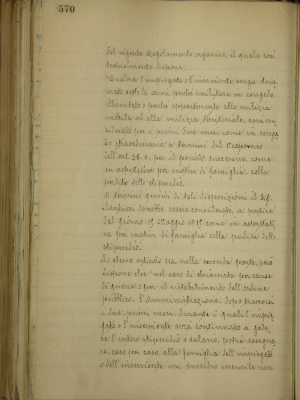 570
del vigente Regolamento organico il quale così
testualmente dispone:
"Qualora l'impiegato o l'inserviente venga chia
mato sotto le armi perché militare in congedo
illimitato o perché appartenente alla milizia
mobile od alla milizia territoriale, sarà con
siderato per i primi due mesi come in conge
do straordinario a termini del capoverso
dell'art. 28. e, pel periodo successivo come
in aspettativa per motivi di famiglia colla
perdita dello stipendio.
A termini quindi di tali disposizioni il Sig.
dovrebbe essere considerato, a partire
dal giorno 15 Maggio 1915 come in aspettati
va per motivi di famiglia colla perdita dello
stipendio.
Lo stesso articolo però nella seconda parte,
dispone che "nel caso di chiamata per causa
di guerra o per il ristabilimento dell'ordine
pubblico, l'Amministrazione, dopo trascorsi
i due primi mesi durante i quali l'impie
gato o l'inserviente avrà continuato a gode
re l'intero stipendio o salario, potrà assegna
re caso per caso, alla famiglia dell'impiegato
o dell'inserviente un assegno mensile non